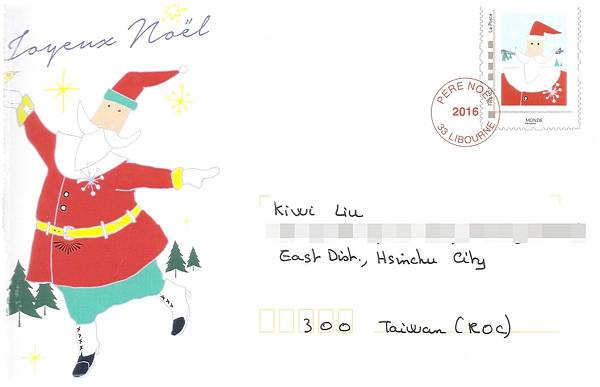 Joyeux Noël
La Poste
MONDE
PERE NOËL
2016
33 LIBOURNE
Kiwi Liu
East Dist., Hsinchu City
300 Taiwan (ROC)